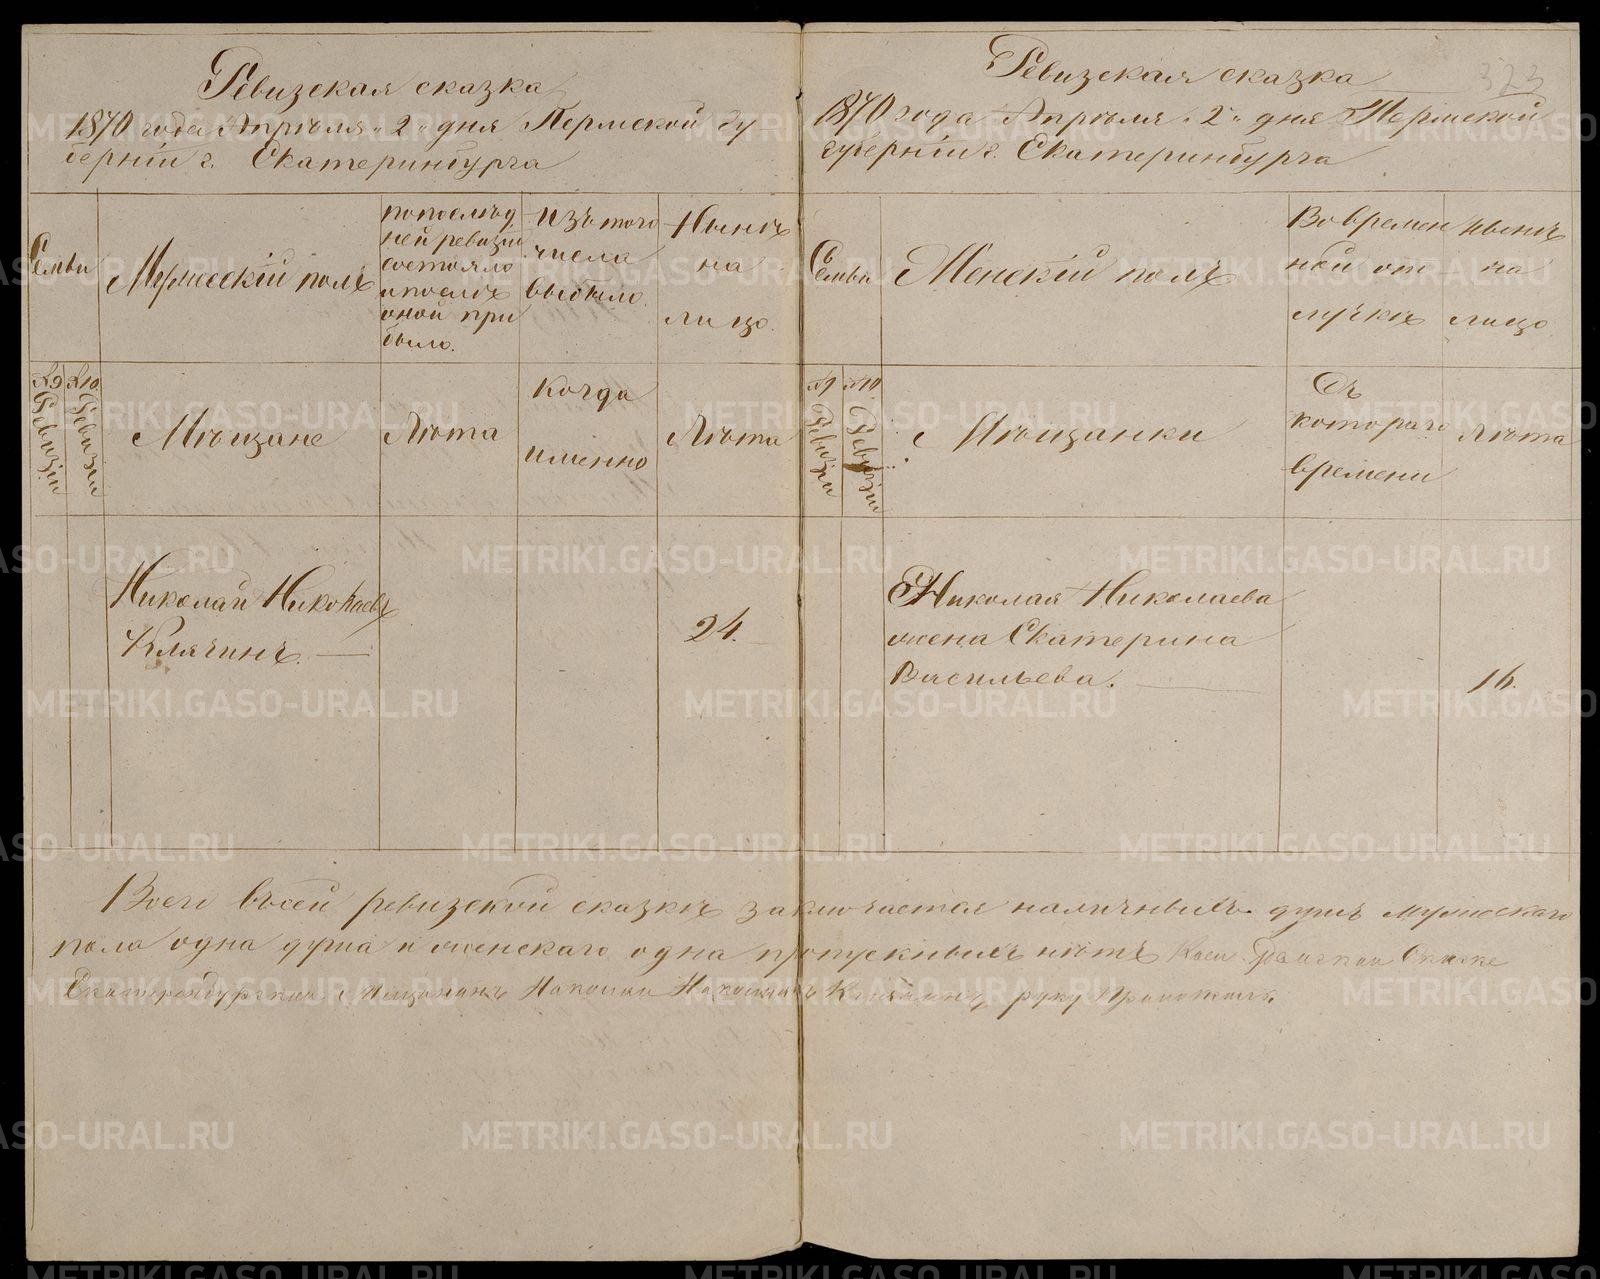 Ревизская сказка
1870 года Апрѣля „2„ дня Пермской гу-
берніи г. Екатеринбурга
Семьи
Мужескій полъ
по послѣд
ней ревизіи
состояло
и послѣ
оной при
было.
Изъ того
числа
выбыло.
Нынѣ
на
лицо.
№ 9 Ревизіи
№ 10 Ревизіи
Мѣщане
Лѣта
Когда
именно
Лѣта
Николай Николаевъ
Клячинъ. —
24.
323
Ревизская сказка
1870 года Апрѣля „2„ дня Пермской
губерніи г. Екатеринбурга
Семьи
Женскій полъ
Во времен
ной от
лучкѣ
нынѣ
на
лицо
№ 9 Ревизіи
№ 10 Ревизіи
Мѣщанки
Съ
котораго
времени
Лѣта
Николая Николаева
жена Екатерина
Васильева. —
16.
Всего въ сей ревизской сказкѣ заключается наличныхъ душъ мужескаго
пола одна душа и женскаго одна пропускныхъ нѣтъ Ксей Сказке
Екатеринбургскій Мещанинъ Руку Приложилъ
METRIKI.GASO-URAL.RU